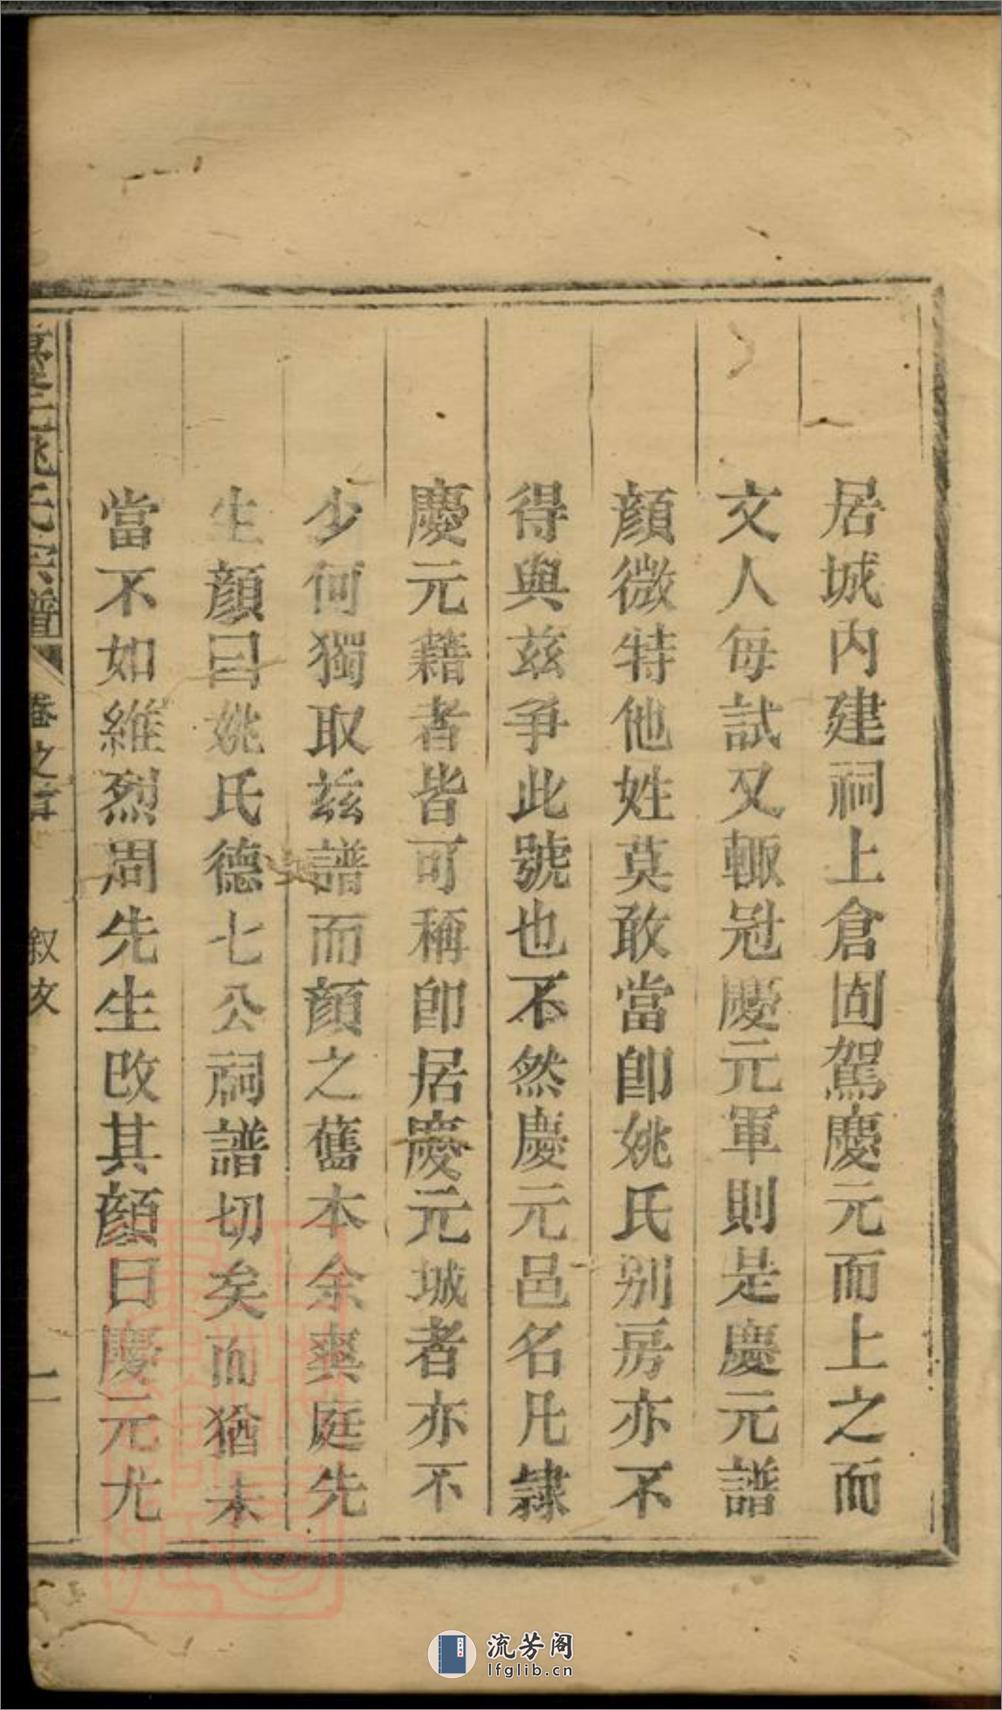 居城內建祠上倉固駕慶元而上之而
文人每試又輙冠慶元軍則是慶元譜
顏微特他姓莫敢當卽姚氏别房亦不
得與茲爭此號也不然慶元邑名凡隸
慶元藉者皆可稱卽居慶元城者亦不
少何獨取茲譜而顏之舊本余奭庭先
生顏曰姚氏德七公祠譜切矣而猶未
當不如維烈周先生改其顏曰慶元尤
姚氏宗譜 卷之首 叙文 二
流芳阁
lfglib.cn